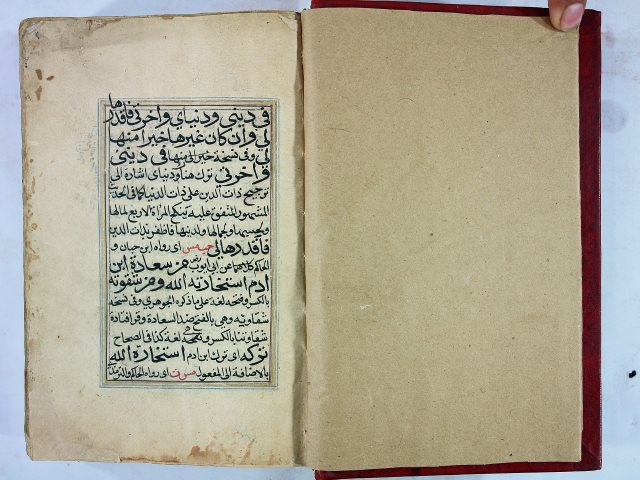 في ديني ودنياي وآخرتي فاقدرها
لي وان كان غيرها خيرا منها
لي وفي نسخة خير لي منها في ديني
وآخرتي ترك هنا ودنياي اشارة الى
ترجيح ذات الدين على ذات الدنيا كما في الحديث
المشهور المتفق عليه تنكح المرأة لاربع لمالها
ولحسبها وجمالها ولدينها فاظفر بذات الدين
فاقدرها لي حب مس اي رواه ابن حبان و
الحاكم كلاهما عن ابي ايوب رض من سعادة ابن
ادم استخارته الله ومن شقوته
بالكسر وفتحه لغة على ما ذكره الجوهري وفي نسخة
شقاوته وهي بالفتح ضد السعادة وقرأ قتادة
شقاوتنا بالكسر وفتحه لغة كذا في الصحاح
تركه اي ترك ابن ادم استخارة الله
بالاضافة الى المفعول مس ت اي رواه الحاكم والترمذي